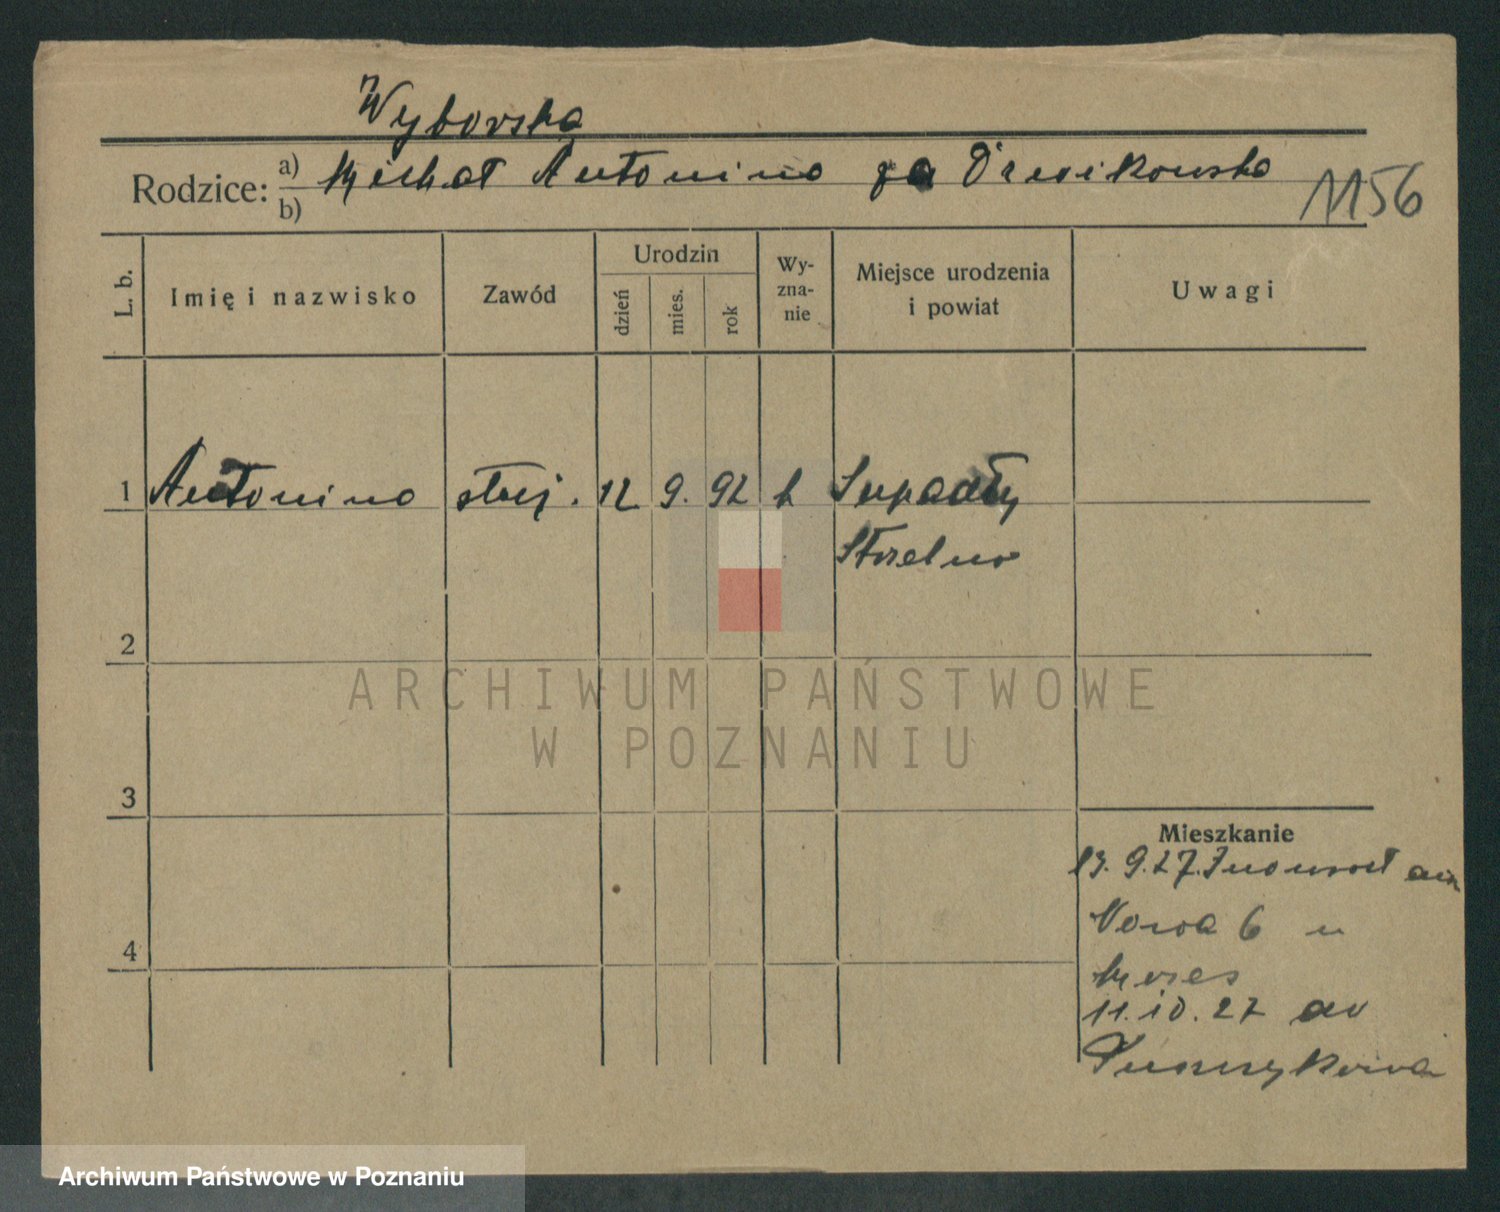 Wyborska
Rodzice: a) Michał Antonina za Drwikowska
b)
1156
L. b.
Imię i nazwisko
Zawód
Urodzin
dzień
mies.
rok
Wy-
zna-
nie
Miejsce urodzenia
i powiat
Uwagi
1 Antonina służ. 12 9. 92 k Supadły
Strzelno
2
ARCHIWUM PAŃSTWOWE
W POZNANIU
3
Mieszkanie
13. 9. 27. Inowrocł
4
Nowa 6 u
11.10.27
Archiwum Państwowe w Poznaniu